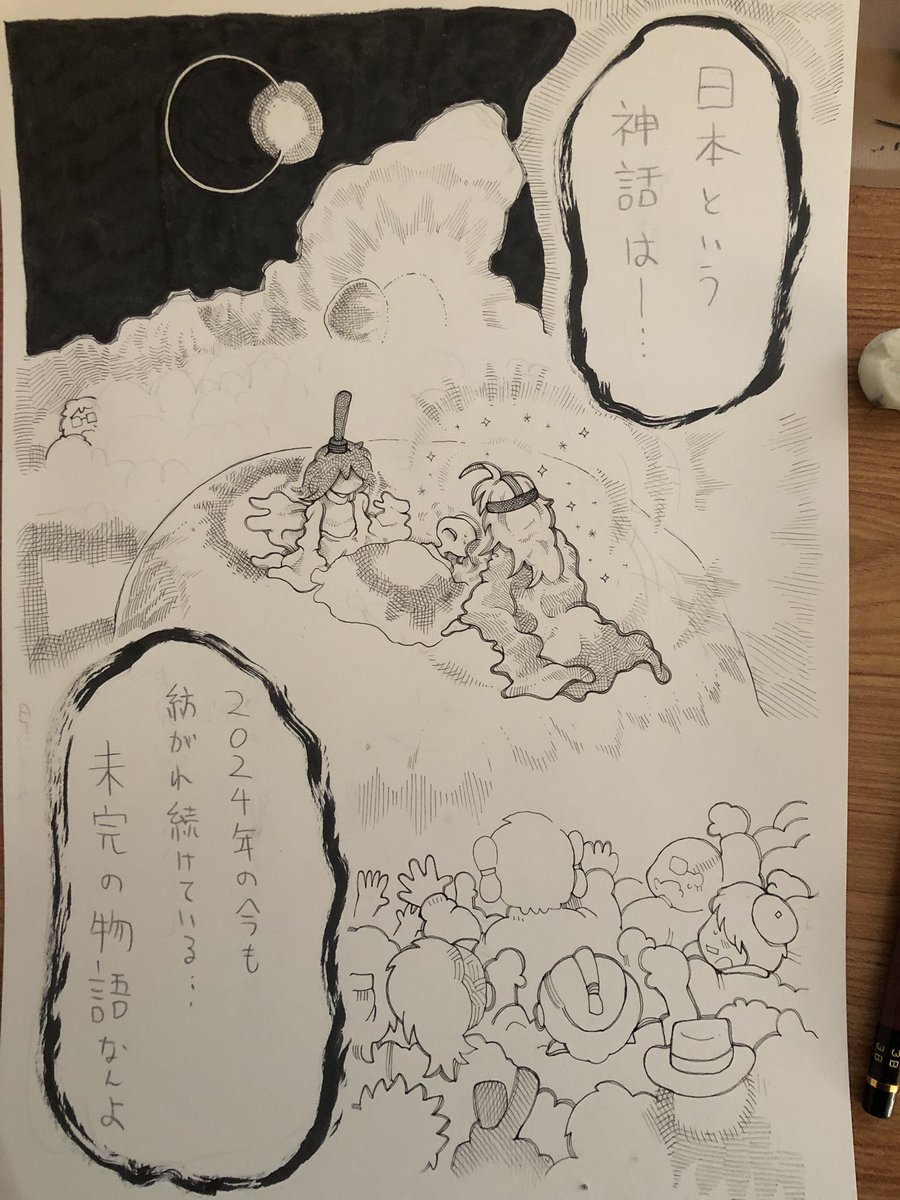 日本という
神話はー…
2024年の今も
紡がれ続けている…
未完の物語なんよ
3B
3B